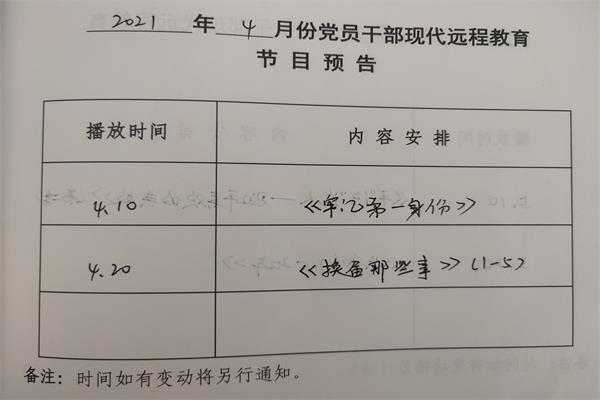 2021 年 4 月份党员干部现代远程教育
节目预告
播放时间 内容安排
4.10 《牢记第一身份》
4.20 《换届那些事》(1-5)
备注：时间如有变动将另行通知。